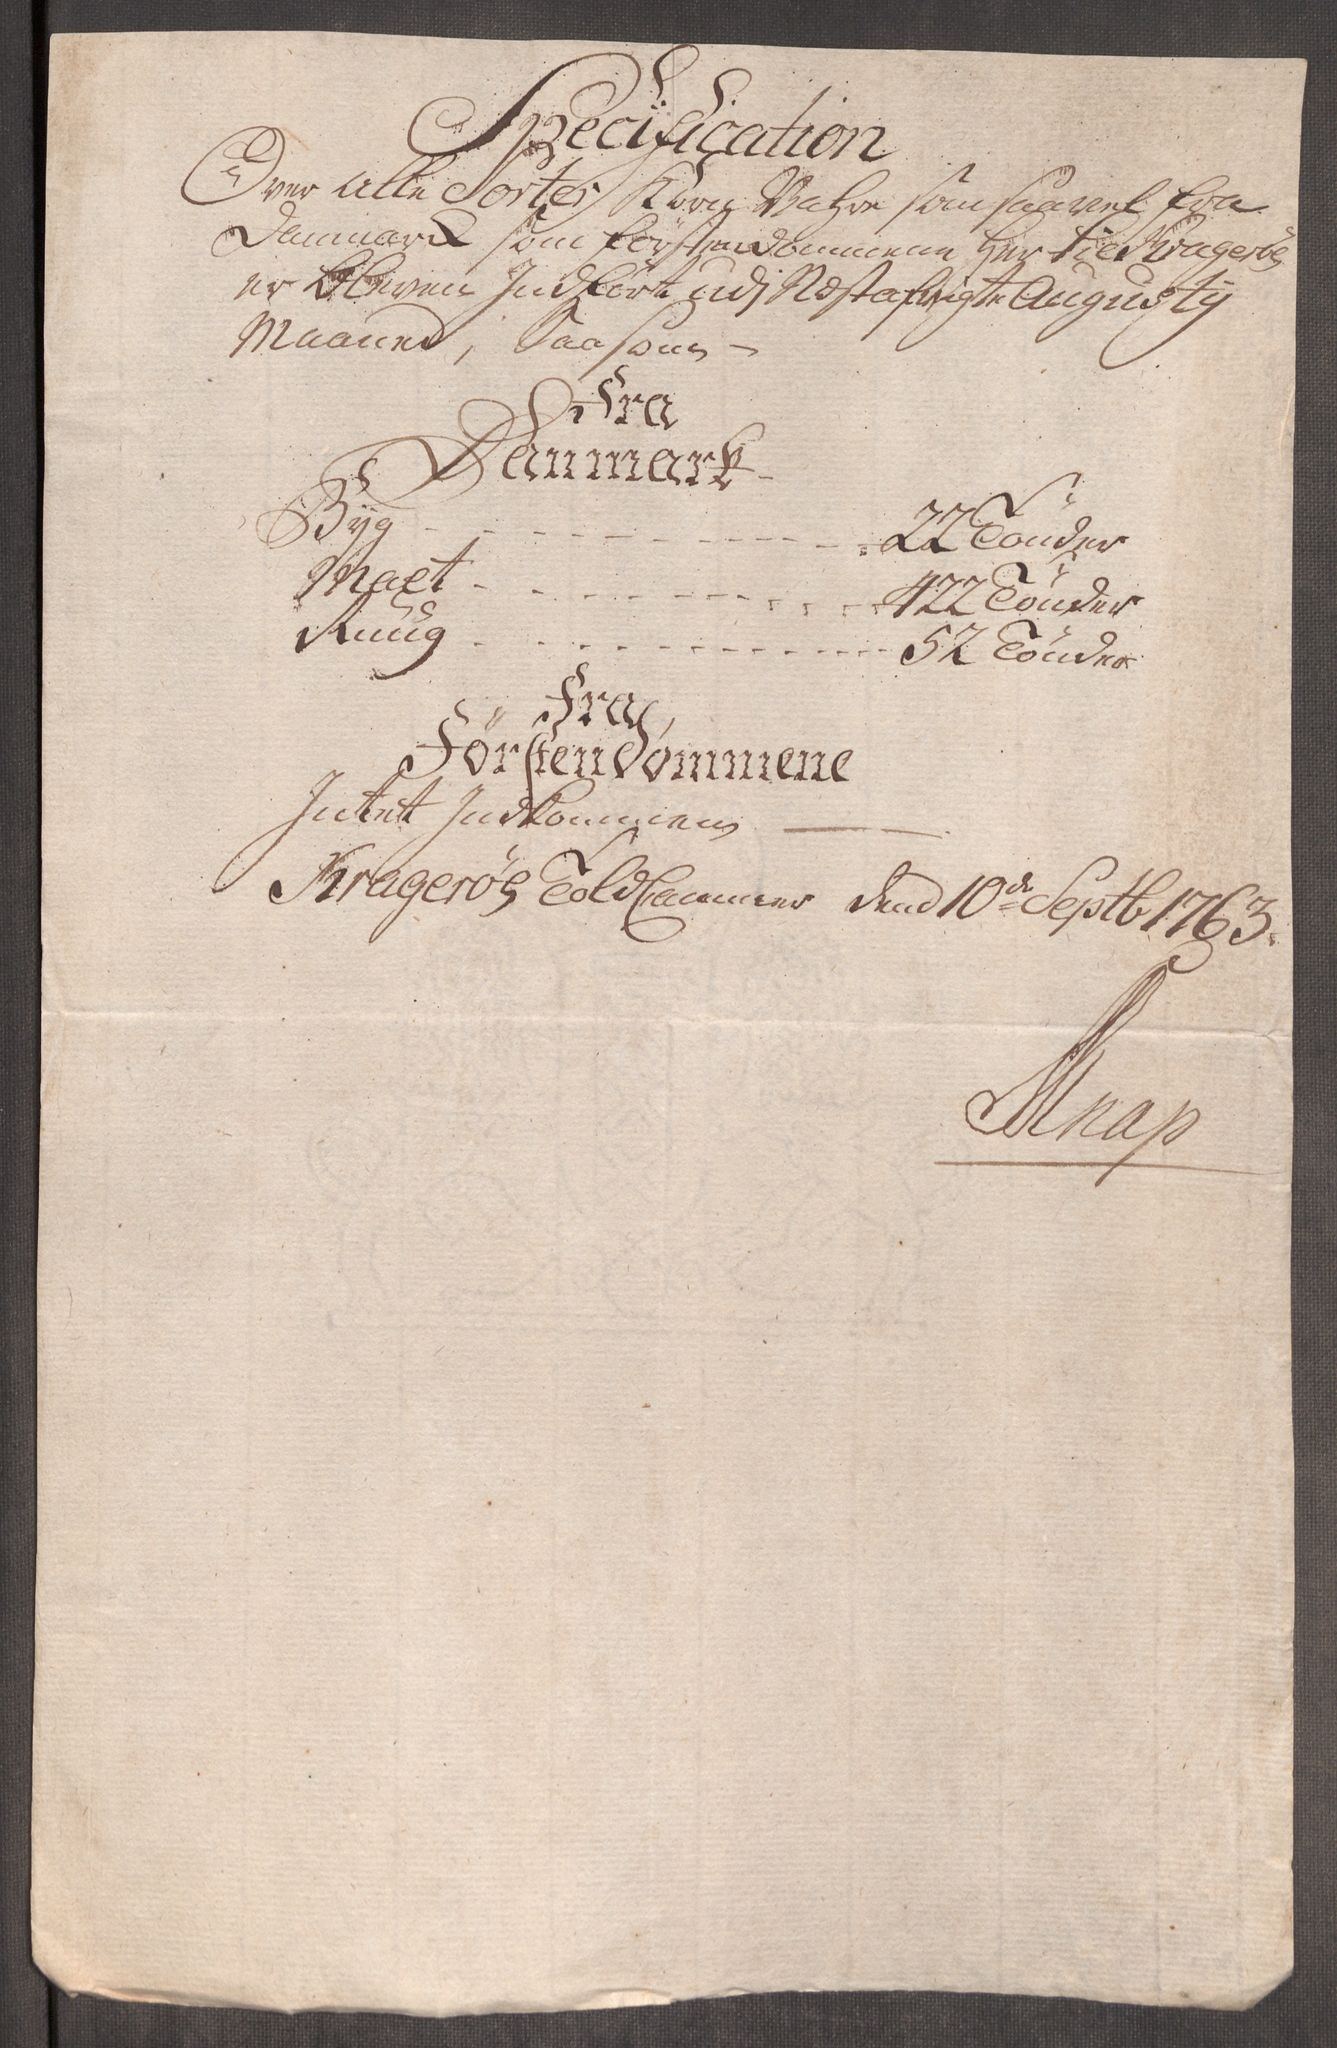 Specification
Over alle Sorter Korn Vahre som saavel fra
Danmark som Förstendommene her til Krageröe
er bleven Indfört udj Næstafvigte Augustij
Maaned, Saasom
Fra
Danmark
Byg 22 Tönder
Malt 422 Tönder
Ruug 52 Tönder
Fra
Förstendommene
Intet Indkommen
Krageröe Told Cammer dend 10de Septb 1763.
Knap